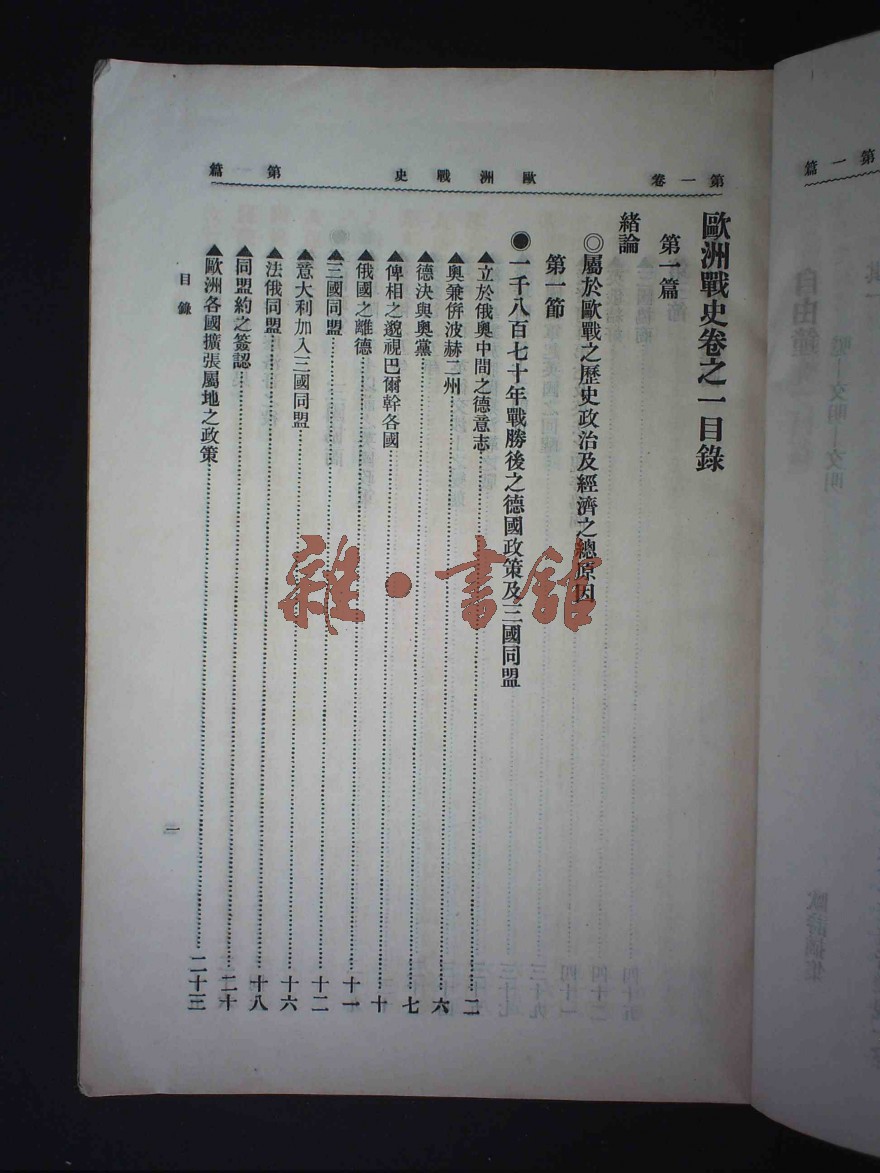 第一卷 歐洲戰史 第 篇
歐洲戰史卷之一目錄
第一篇
緒論
◎屬於歐戰之歷史政治及經濟之總原因
第一節
●一千八百七十年戰勝後之德國政策及三國同盟
▲立於俄奧中間之德意志……二
▲奧兼併波赫二州……六
▲德決與奧黨……七
▲俾相之邈視巴爾幹各國……十
▲俄國之離德……十一
▲三國同盟……十二
▲意大利加入三國同盟……十六
▲法俄同盟……十八
▲同盟約之簽認……二十
▲歐洲各國擴張屬地之政策……二十三
目錄
一
第一篇
雜·書館